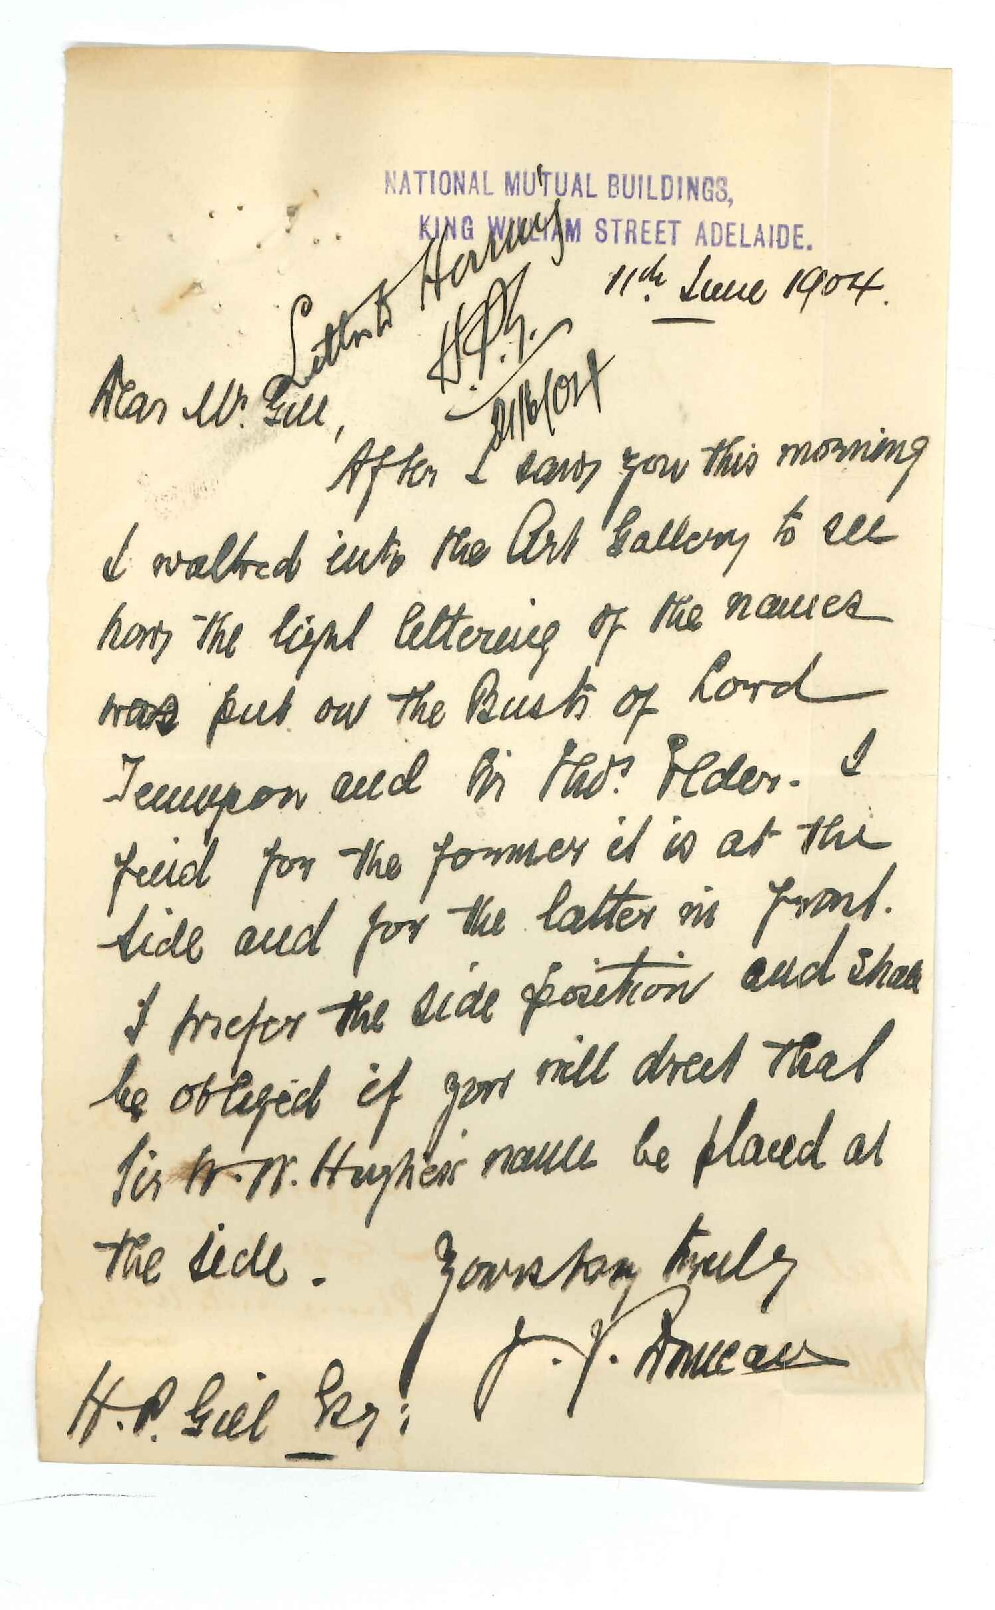 NATIONAL MUTUAL BUILDINGS,
KING WILLIAM STREET ADELAIDE.
11th. June 1904.
Letter to
H.P.G.
21/6/04
Dear Mr. Gill,
After I saw you this morning
I walked into the Art Gallery to see
how the light lettering of the names
was put on the Busts of Lord
Tennyson and Sir Thos. Elder. I
find for the former it is at the
side and for the latter in front.
I prefer the side position and shall
be obliged if you will direct that
Sir W. W. Hughes' name be placed at
the side.
Yours very truly
J. J. Duncan
H. P. Gill Esq: